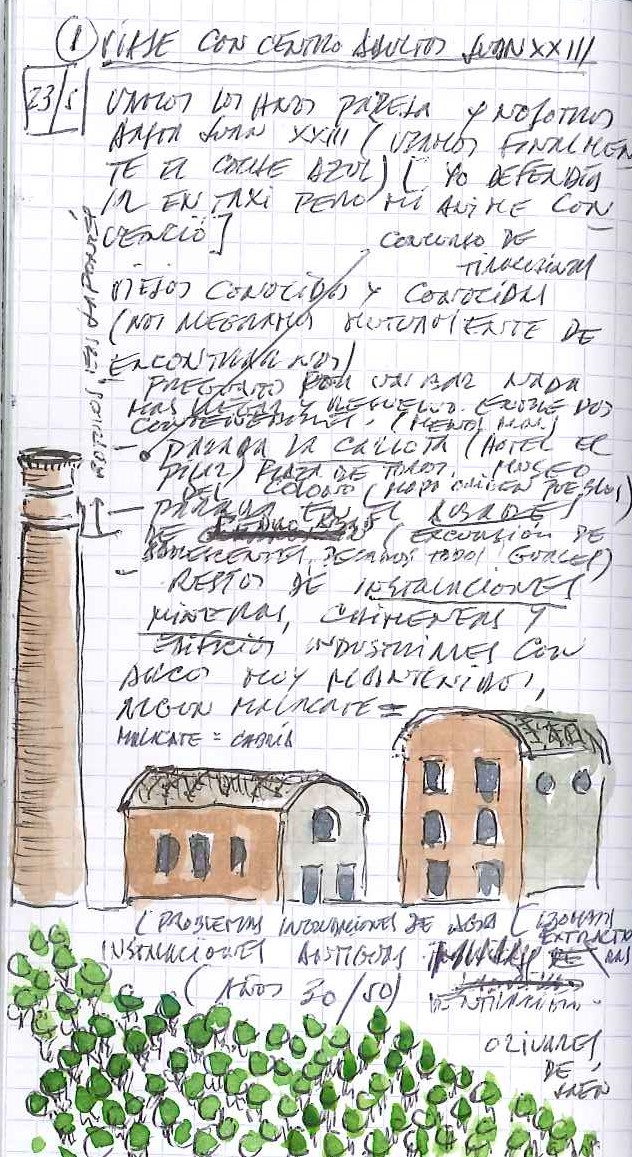 1 VIAJE CON CENTRO ADULTOS JUAN XXIII
23/5
VAMOS LOS ANOS PAREJA Y NOSOTROS
HASTA JUAN XXIII (USAMOS FINALMEN
TE EL COCHE AZUL) [YO DEFENDÍA
IR EN TAXI PERO MI ANIME CON
VENCIÓ]
CONCURSO DE
VIEJOS CONOCIDOS Y CONOCIDAS
(NOS ALEGRAMOS MUTUAMENTE DE
ENCONTRARNOS)
PREGUNTO POR UN BAR NADA
MAS LLEGAR Y RESUELVO ENTRE DOS
CONTENEDORES. (MENOS MAL)
- PARADA LA CARLOTA (HOTEL EL
PILAR) PLAZA DE TOROS. MUSEO
DEL COLONO (MAPA ORIGEN PUEBLOS)
- PARADA EN EL
DE (EXCURSION DE
ADOLESCENTES, TODOS IGUALES)
- RESTOS DE INSTALACIONES
MINERAS, CHIMENEAS Y
EDIFICIOS INDUSTRIALES CON
ARCOS MUY MANTENIDOS,
ALGUN MALACATE =
MALACATE = CABRIA
(PROBLEMAS INUNDACIONES DE AGUA
INSTALACIONES ANTIGUAS
(AÑOS 30/50)
OLIVARES
DE
JAÉN